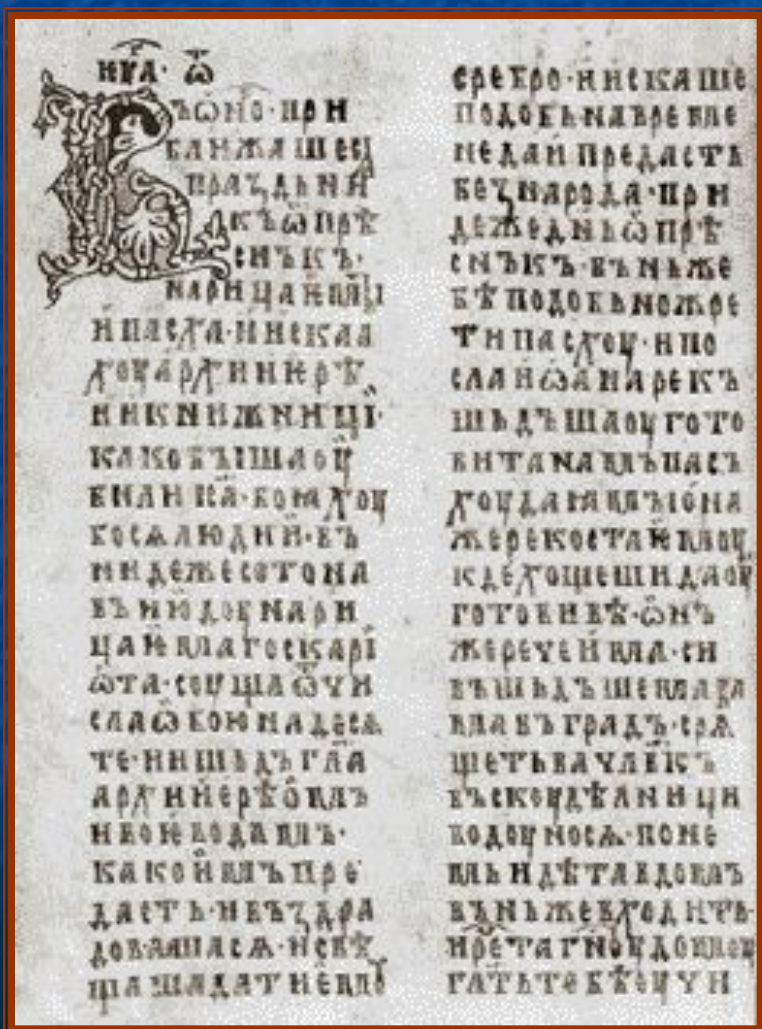 ВЪѠНО·ПРИ
БЛИЖАШЕСѦ
ПРАꙀДЬНИ
КЪѠПРѢ
СНЪКЪ·
НАРИЦАЕМЫ
ИПАСХА·ИИСКАА
ХОУАРХИИЕРѢ
ИКНИЖНИЦІ·
КАКОБЫШАОУ
БИЛИЕГА·БОꙖХОУ
БОСѦЛЮДИИ·ВЪ
НИДЕЖЕСОТОНА
ВЪИЮДОУНАРИ
ЦАЕМАГОСКАРІ
ѠТА·СОУЩАѾЧИ
СЛАѠБОЮНАДЕСѦ
ТЕ·ИИШЬДЪГЛ҃А
АРХИИЕРѢѠМЪ
ИВОЕВОДАМЪ·
КАКОИМЪПРЕ
ДАСТЬ·ИВЪꙀДРА
ДОВАШАСѦ·ИСВѢ
ЩАШАДАТИЕМꙊ
СРЕБРО·ИИСКАШЕ
ПОДОБЬНАВРЕМЕ
НЕДАИПРЕДАСТЬ
БЕꙀНАРОДА·ПРИ
ДЕЖЕДН҃ЬѠПРѢ
СНЪКЪ·ВЪНЬЖЕ
БѢПОДОБЬНОЖРЕ
ТИПАСХОУ·ИПО
СЛАИѠАНАРЕКЪ
ШЬДЪШАОУГОТО
ВИТАНАМЪПАСЪ
ХОУДАꙖМЪ·ѠНА
ЖЕРЕКОСТАЕМОУ
КДЕХОЩЕШИДАОУ
ГОТОВИВѢ·ѠНЪ
ЖЕРЕЧЕИМА·СИ
ВЪШЬДЪШЕМАВА
МАВЪГРАДЪ·СРѦ
ЩЕТЬВАЧЛ҃ВКЪ
ВЪСКОУДѢЛНИЦИ
ВОДОУНОСѦ·ПОНЕ
МЬИДѢТАВДОМЪ
ВЪНЬЖЕВХОДИТЬ·
ИРЕ҃ТАГН҃ОУДОМОУ
ГЛАТЬТЕБѢОУЧИ